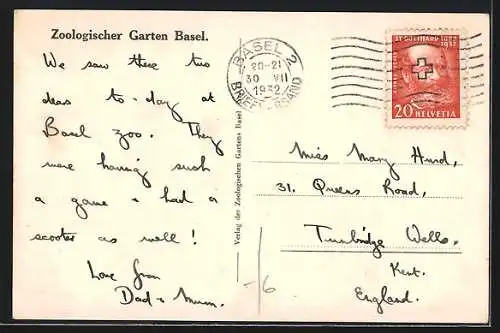 Zoologischer Garten Basel.
We saw these two
dears to-day at
Basel Zoo. They
were having such
a game & had a
scooter as well!
Love from
Dad & Mum.
Verlag des Zoologischen Gartens Basel
BASEL 2
20-21
30 VII
1932
BRIEFVERSAND
ST GOTTHARD 1882
1932
20 HELVETIA
Miss Mary Hurd,
31. Queens Road,
Tunbridge Wells.
Kent.
England.
-/6